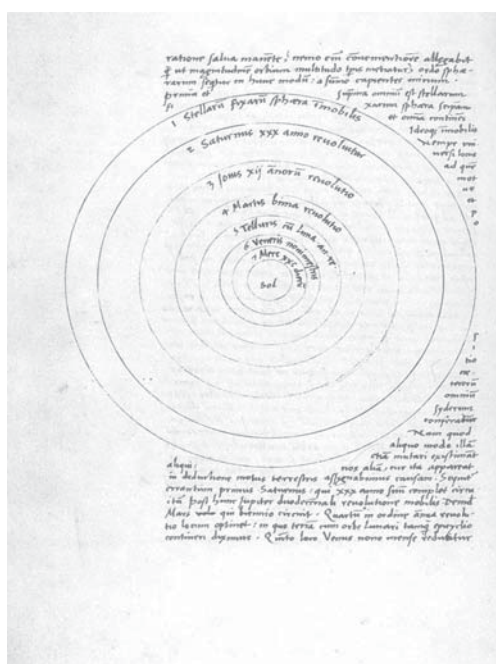 ratione salua manente, nemo em̄ conuenientiorē allegabit
q̃ ut magnitudinē orbium multitudo tp̄is metiatur, ordo sphæ-
rarum sequitur in hunc modū: a sūmo capientes initium.
prima et suprema omniū est stellarum
fixarum sphæra seipsam
et omnia continēs
Ideoq; īmobilis
nempe vni-
uersi locus
ad quē
mot
us
et
p
o
1 Stellarū fixarū sphæra īmobilis
2 Saturnus xxx anno reuoluitur
3 Jouis xij ānorū reuolutio
4 Martis bima reuolutio
5 Telluris cū luna an. re
6 Veneris nonimestris
7 Merc xxc dierū
Sol
s
i
tio
cæ-
terorū
omniū
syderum
conferatur
Nam quod
aliquo modo illā
etiā mutari existimāt
aliqui: nos aliā, cur ita appareat
in deductione motus terrestris assignabimus causam. Sequit
errantium primus Saturnus: qui xxx anno suū complet circu
itū. post hunc Jupiter duodecēnali reuolutione mobilis. Deind
Mars qui biennio circuit. Quartū in ordine ānua reuolu-
tio locum optinet: in quo terrā cum orbe lunari tanq̃ epicyclio
contineri diximus. Quinto loco Venus nono mense reducitur